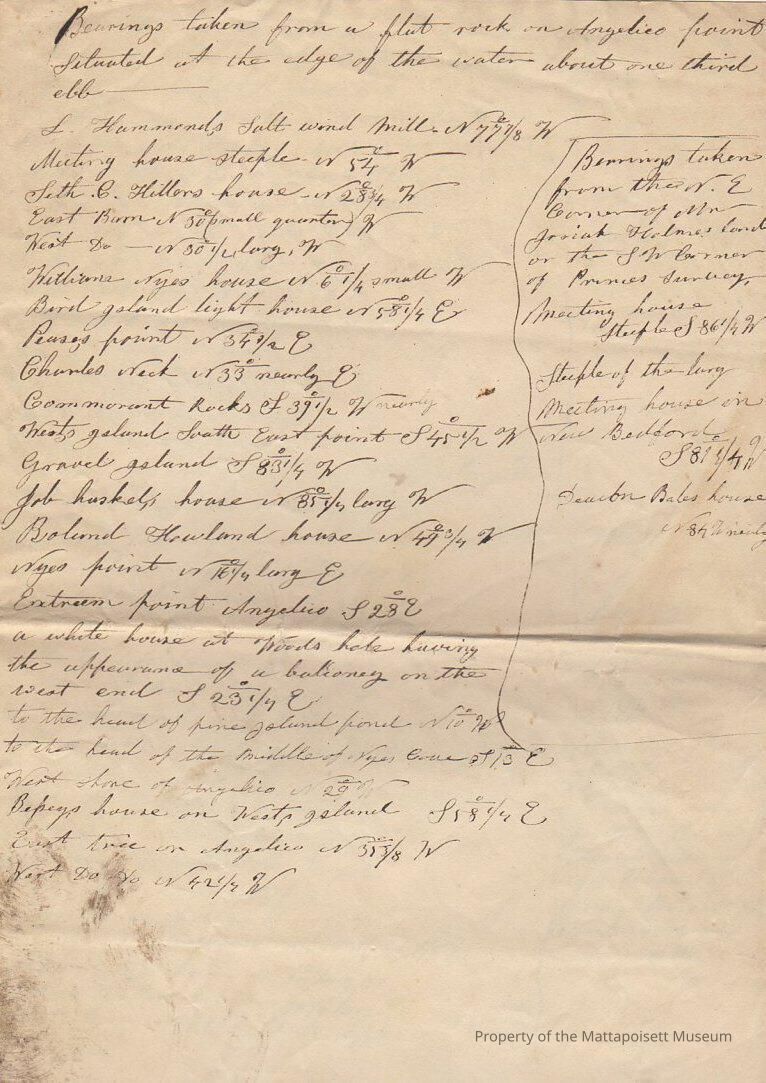 Bearings taken from a flat rock on Angelico point
Situated at the edge of the water about one third
ebb
L. Hammonds Salt wind Mill. N 77 7/8 W
Meeting house steeple - N 54 W
Seth C. Hillers house - N 28 3/4 W
East Barn N 30 (small quarter) W
West Do - N 30 1/2 larg, W
Williams Nyes house N 6 1/4 small W
Bird gsland light house N 58 1/4 E
Peases point N 34 1/2 E
Charles Neck N 33 nearly E
Commorant Rocks S 39 1/2 W nearly
Wests gsland South East point S 45 1/2 W
Gravel gsland S 83 1/4 W
Job haskels house N 85 1/4 larg W
Boland Howland house N 49 3/4 W
Nyes point N 16 1/4 larg E
Extreem point Angelico S 28 E
a white house at Woods hole having
the appearance of a balconey on the
west end S 23 1/4 E
to the head of pine gsland pond N 10 W
to the head of the Middle of Nyes Cove S 13 E
West shore of Angelico N 29 W
house on Wests gsland S 58 1/4 E
East tree on Angelico N 35 3/8 W
West Do Do N 42 1/4 W
Bearings taken
from the N. E
Corner of Mr
Josiah Holmes land
or the S W Corner
of Princes Survey,
Meeting house
Steeple S 86 1/4 W
Steeple of the larg
Meeting house in
New Bedford
S 81 1/4 W
Deacon Bates house
N 84 W nearly
Property of the Mattapoisett Museum